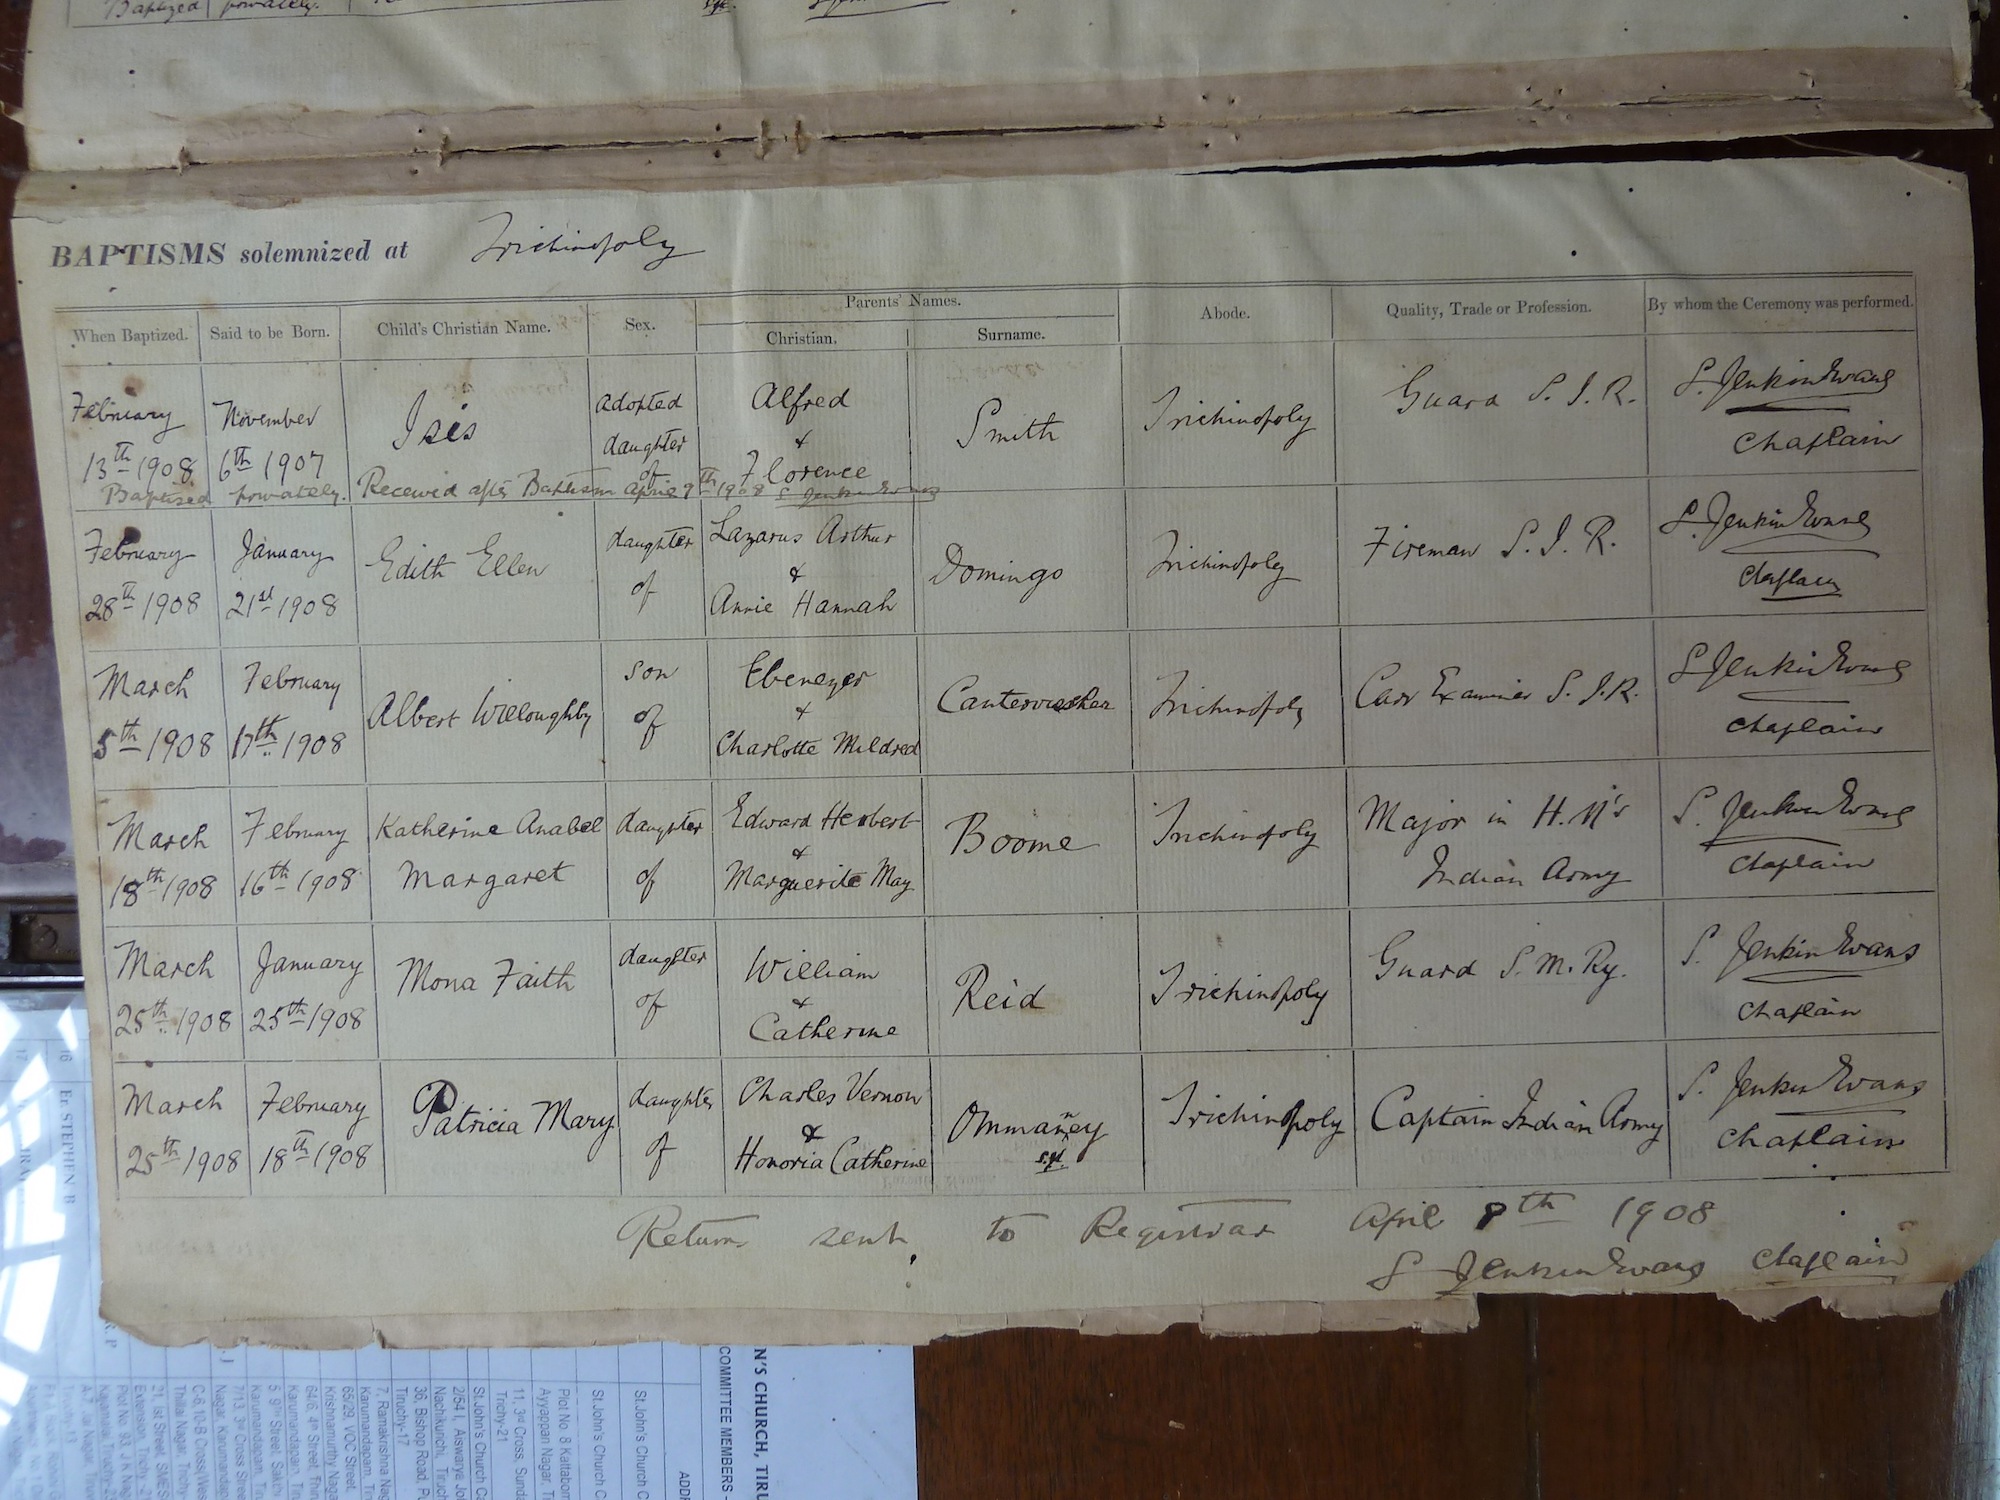 Baptized privately.
BAPTISMS solemnized at Trichinopoly
Parents' Names.
When Baptized. Said to be Born. Child's Christian Name. Sex. Christian. Surname. Abode. Quality, Trade or Profession. By whom the Ceremony was performed.
February 13th 1908 November 6th 1907 Isis adopted daughter of Alfred & Florence Smith Trichinopoly Guard S. I. R. S. Jenkin Evans Chaplain
Baptised privately. Received after Baptism April 9th 1908 S Jenkin Evans
February 28th 1908 January 21st 1908 Edith Ellen daughter of Lazarus Arthur & Annie Hannah Domingo Trichinopoly Fireman S. I. R. S. Jenkin Evans Chaplain
March 5th 1908 February 17th 1908 Albert Willoughby son of Ebenezer & Charlotte Mildred Trichinopoly Carr Examiner S. I. R. S Jenkin Evans Chaplain
March 18th 1908 February 16th 1908 Katherine Anabel Margaret daughter of Edward Herbert & Marguerite May Boome Trichinopoly Major in H. M's Indian Army S. Jenkin Evans Chaplain
March 25th 1908 January 25th 1908 Mona Faith daughter of William & Catherine Reid Trichinopoly Guard S. M. Ry. S. Jenkin Evans Chaplain
March 25th 1908 February 18th 1908 Patricia Mary daughter of Charles Vernon & Honoria Catherine Ommanney Trichinopoly Captain Indian Army S. Jenkin Evans Chaplain
Return sent to Registrar April 8th 1908
S Jenkin Evans Chaplain
16 Er. STEPHEN B
17
N'S CHURCH, TIRU
COMMITTEE MEMBERS -
ADDR
St.John's Church C
St.John's Church C
Plot No. 8 Kattabom
Ayyappan Nagar, T
11, 3rd Cross, Sunda
Trichy-21
St.John's Church Ca
2/54 I, Aiswarya Jo
Nachikurichi, Tiruch
36, Bishop Road, Pu
Tiruchy-17
7, Ramakrishna Nag
Karumandapam, Ti
65/29, VOC Street,
Krishnamurthy Nagar
64/6, 4th Street, Thin
Karumandapam, Ti
5, 9th Street, Sakthi
Karumandapam, Ti
7/13, 3rd Cross Stree
Nagar, Karumandap
C-6, 10-B Cross/Wes
Thillai Nagar, Trichy-
21, Ist Street, SMES
Extension, Trichy - 2
Plot No. 93, J K Nag